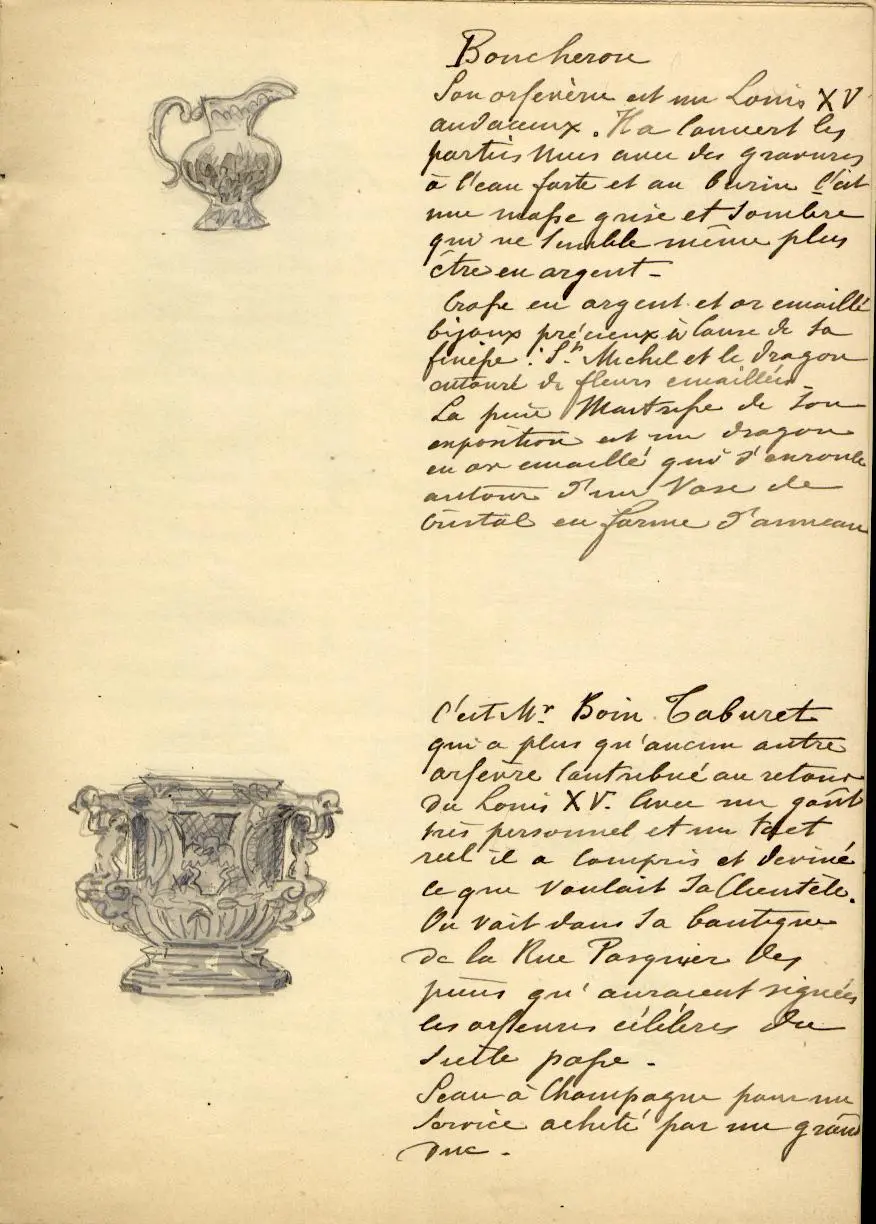 Boucheron
Son orfévèrie est un Louis XV
audacieux. Il a couvert les
parties nues avec des gravures
à l'eau forte et au burin c'est
une masse grise et sombre
qui ne semble même plus
être en argent -
Crosse en argent et or emaillé
bijoux précieux à cause de sa
finesse : St Michel et le dragon
entouré de fleurs emaillées -
La pièce Maitresse de son
exposition est un dragon
en or emaillé qui s'enroule
autour d'un Vase de
Cristal en forme d'anneau
C'est Mr Boin Taburet
qui a plus qu'aucun autre
orfèvre contribué au retour
du Louis XV. Avec un goût
très personnel et un tact
reel il a compris et deviné
ce que voulait sa Clientèle.
On voit dans sa boutique
de la Rue Pasquier des
pièces qu'auraient signées
les orfevres célébres du
siecle passe -
Seau à Champagne pour un
service acheté par un grand
duc -